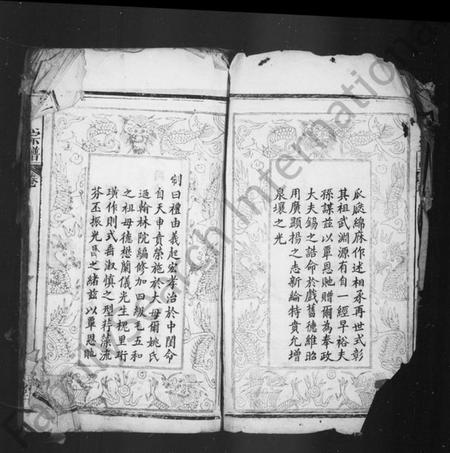 瓜瓞綿麻作述相承再世式彰
其祖武淵源有自一經早裕夫
孫謀茲以覃恩貤贈爾為奉政
大夫錫之誥命於戲舊德維昭
用廣顯揚之志新綸特賁允增
泉壤之光
制曰禮由義起宏孝治於中閨令
自天申賁榮施於大母爾姚氏
迺翰林院編修加四級毛五和
之祖母德懋蘭儀光生梩里珩
璜作則式垂淑慎之型荇藻流
芬丕振光之緒茲以覃恩貤
宗譜
卷
FamilySearch International